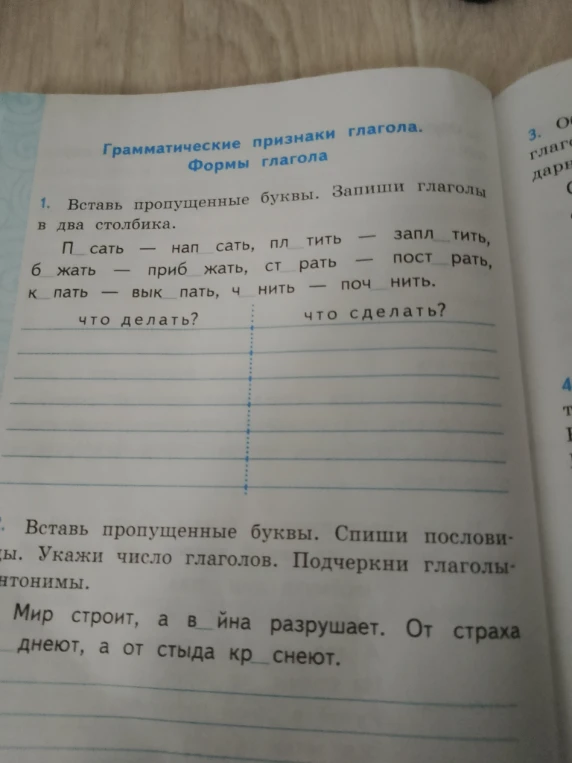 Грамматические признаки глагола.
Формы глагола
1. Вставь пропущенные буквы. Запиши глаголы
в два столбика.
П_сать — нап_сать, пл_тить — запл_тить,
б_жать — приб_жать, ст_рать — пост_рать,
к_пать — вык_пать, ч_нить — поч_нить.
что делать? что сделать?
. Вставь пропущенные буквы. Спиши послови-
цы. Укажи число глаголов. Подчеркни глаголы-
нтонимы.
Мир строит, а в_йна разрушает. От страха
днеют, а от стыда кр_снеют.
3.
глаг
дарн
4